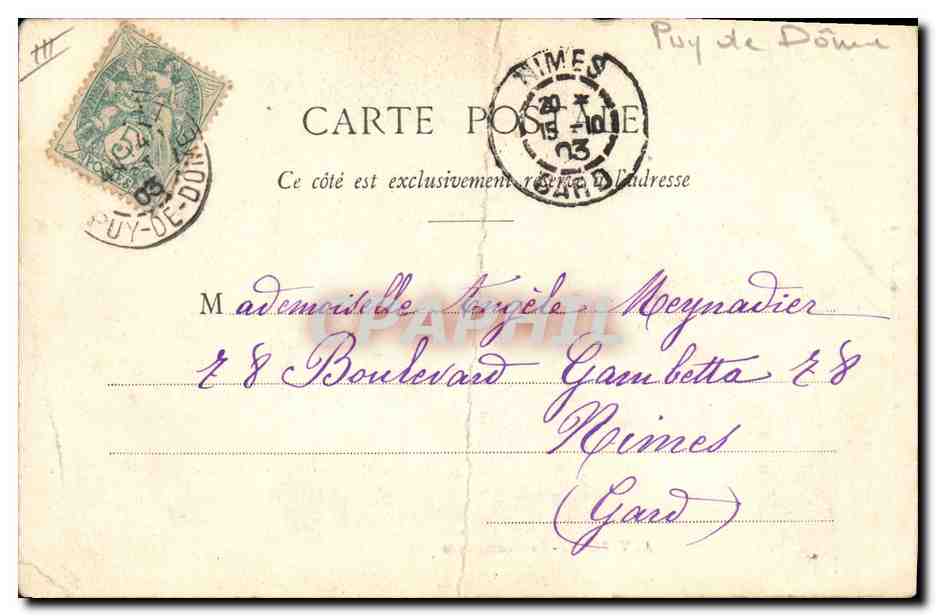 Puy de Dôme
NIMES
20 *
15 -10
03
GARD
5
POSTES
03
PUY-DE-DOME
CARTE POSTALE
Ce côté est exclusivement réservé à l'adresse
Mademoiselle Angèle Meynadier
78 Boulevard Gambetta 78
Nimes
(Gard)
CPAPHIL